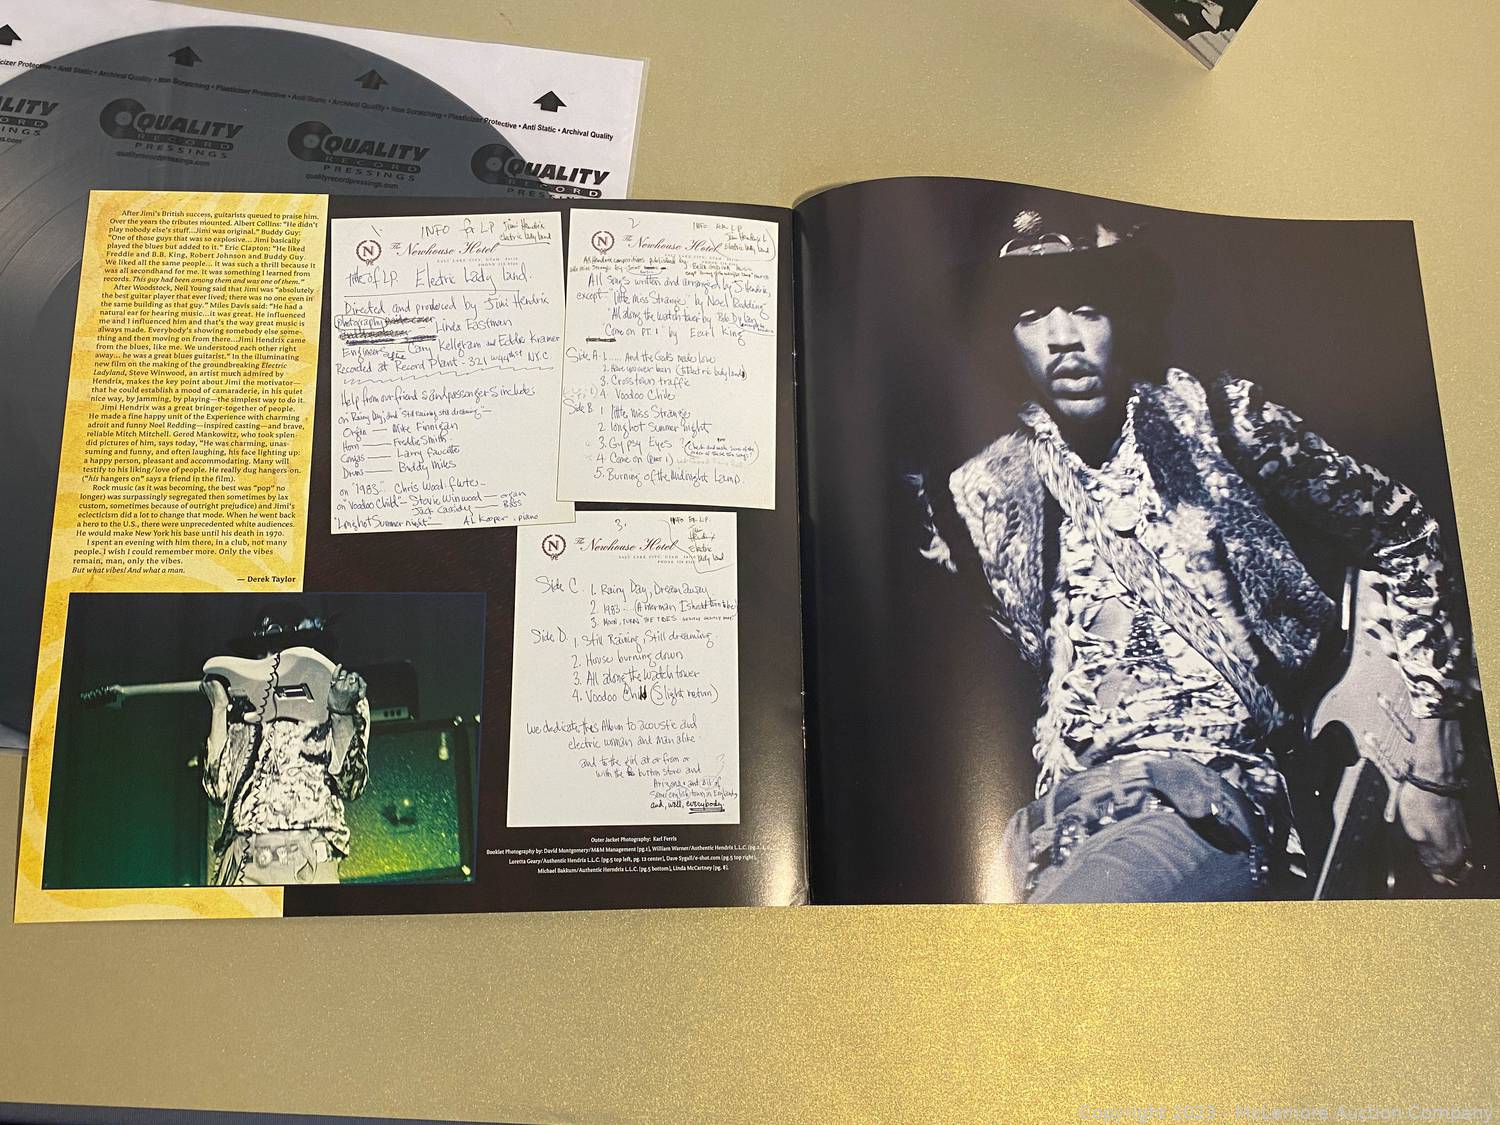 Plasticizer Protective • Anti Static • Archival Quality • Non Scratching • Plasticizer Protective • Anti Static • Archival Quality • Non Scratching • Plasticizer Protective • Anti Static • Archival Quality
QUALITY
RECORD
PRESSINGS
qualityrecordpressings.com
QUALITY
RECORD
PRESSINGS
qualityrecordpressings.com
QUALITY
RECORD
After Jimi's British success, guitarists queued to praise him.
Over the years the tributes mounted. Albert Collins: "He didn't
play nobody else's stuff...Jimi was original." Buddy Guy:
"One of those guys that was so explosive... Jimi basically
played the blues but added to it." Eric Clapton: "He liked
Freddie and B.B. King, Robert Johnson and Buddy Guy.
We liked all the same people... it was such a thrill because it
was all secondhand for me. It was something I learned from
records. This guy had been among them and was one of them."
After Woodstock, Neil Young said that Jimi was "absolutely
the best guitar player that ever lived; there was no one even in
the same building as that guy." Miles Davis said: "He had a
natural ear for hearing music...it was great. He influenced
me and I influenced him and that's the way great music is
always made. Everybody's showing somebody else some-
thing and then moving on from there...Jimi Hendrix came
from the blues, like me. We understood each other right
away... he was a great blues guitarist." In the illuminating
new film on the making of the groundbreaking Electric
Ladyland, Steve Winwood, an artist much admired by
Hendrix, makes the key point about Jimi the motivator—
that he could establish a mood of camaraderie, in his quiet
nice way, by jamming, by playing—the simplest way to do it.
Jimi Hendrix was a great bringer-together of people.
He made a fine happy unit of the Experience with charming
adroit and funny Noel Redding—inspired casting—and brave,
reliable Mitch Mitchell. Gered Mankowitz, who took splen-
did pictures of him, says today, "He was charming, unas-
suming and funny, and often laughing, his face lighting up:
a happy person, pleasant and accommodating. Many will
testify to his liking/love of people. He really dug hangers-on.
("his hangers on" says a friend in the film).
Rock music (as it was becoming, the best was "pop" no
longer) was surpassingly segregated then sometimes by lax
custom, sometimes because of outright prejudice) and Jimi's
eclecticism did a lot to change that mode. When he went back
a hero to the U.S., there were unprecedented white audiences.
He would make New York his base until his death in 1970.
I spent an evening with him there, in a club, not many
people. I wish I could remember more. Only the vibes
remain, man, only the vibes.
But what vibes! And what a man.
— Derek Taylor
1
INFO for LP
Jimi Hendrix
electric lady land
N
The Newhouse Hotel
SALT LAKE CITY, UTAH
Title of LP. Electric Lady land.
Directed and produced by Jimi Hendrix
photography
Linda Eastman
Engineers Gary Kellgram and Eddie Kramer
Recorded at Record Plant - 321 W 44th St N.Y.C
Help from our friends and passengers includes
on "Rainy Day", and "Still raining still dreaming" —
Organ — Mike Finnigan
Horn — Freddie Smith
Congas — Larry Faucette
Drums — Buddy Miles
on "1983" Chris Wood: flutes —
on "Voodoo Child" — Stevie Winwood — organ
Jack Casidy — Bass
"Long hot Summer night" — AL Kooper . piano
2
INFO FOR LP
Jimi Hendrix
electric lady land
N
The Newhouse Hotel
All songs written and arranged by J. Hendrix,
except - "little Miss Strange" by Noel Redding
"All along the watchtower" by Bob Dylan
"Come on PT. 1" by Earl King
Side A: 1..... And the Gods made love
2. Have you ever been (to Electric lady land)
3. Crosstown traffic
4. Voodoo Chile
Side B. 1 little Miss Strange
2 long hot Summer Night
3. Gypsy Eyes
4. Come on (Part 1)
5. Burning of the Midnight Lamp.
3.
INFO FOR LP.
Jimi
Hendrix
electric
lady land
N
The Newhouse Hotel
SALT LAKE CITY, UTAH
Side C. 1. Rainy Day, Dream away
2. 1983 .. (A merman I should turn to be)
3. MOON, TURN THE TIDES gently gently away
Side D. 1. Still Raining, Still dreaming.
2. House burning down
3. All along the Watchtower
4. Voodoo Child (Slight return)
We dedicate this Album to acoustic and
electric woman and man alike.
and to the girl at or from or
with the button store and
Arizona and bit of
Some english town in England
and, well, everybody
Outer Jacket Photography: Karl Ferris
Booklet Photography by: David Montgomery/M&M Management (pg.1), William Warner/Authentic Hendrix L.L.C.
Loretta Geary/Authentic Hendrix L.L.C. (pg.5 top left, pg. 12 center), Dave Sygall/e-shot.com (pg.5 top right),
Michael Bakkum/Authentic Hendrix L.L.C. (pg.5 bottom), Linda McCartney (pg. 8).
Copyright 2023 - McLemore Auction Company